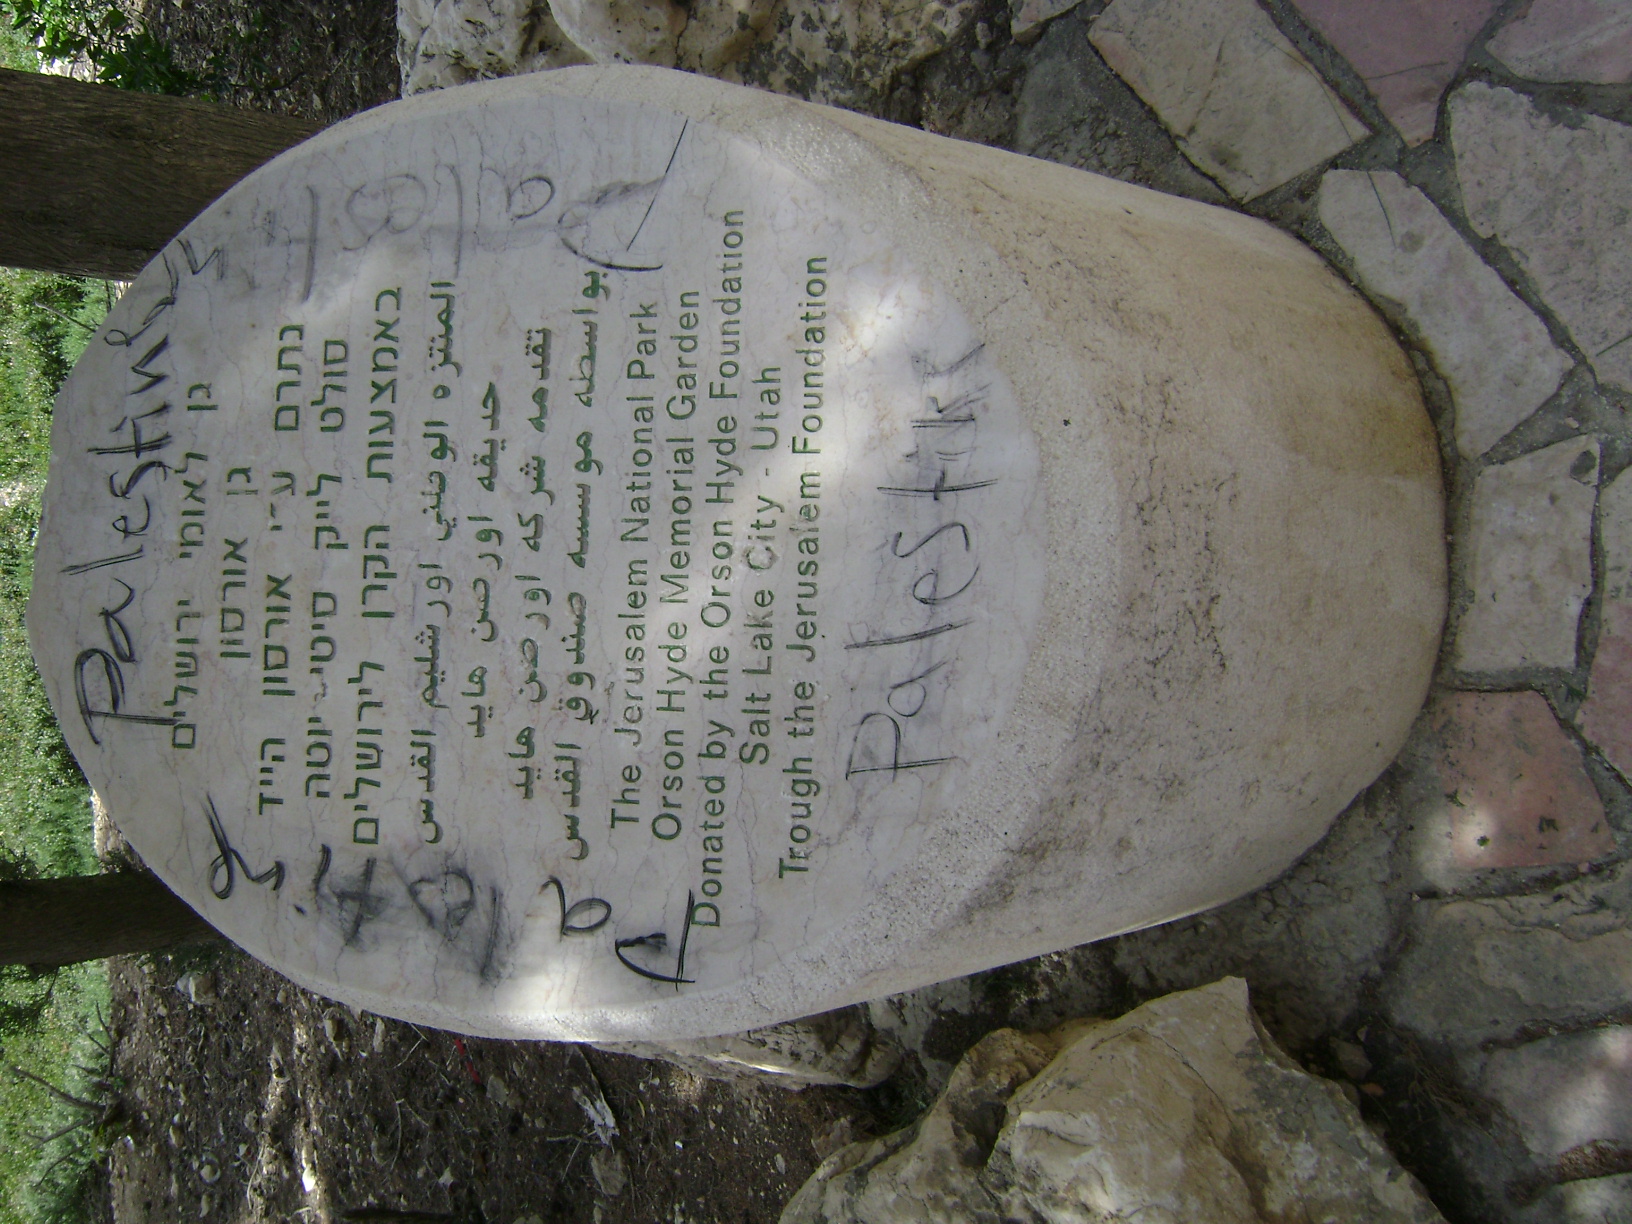 Palestine
גן לאומי ירושלים
גן אורסון
נתרם ע״י אורסון הייד
סולט לייק סיטי - יוטה
באמצעות הקרן לירושלים
المنتزه الوطني اورشليم القدس
حديقه اورصن هايد
تقدمه شركه اورصن هايد
بواسطه موسسه صندوق القدس
The Jerusalem National Park
Orson Hyde Memorial Garden
Donated by the Orson Hyde Foundation
Salt Lake City - Utah
Trough the Jerusalem Foundation
Palestine